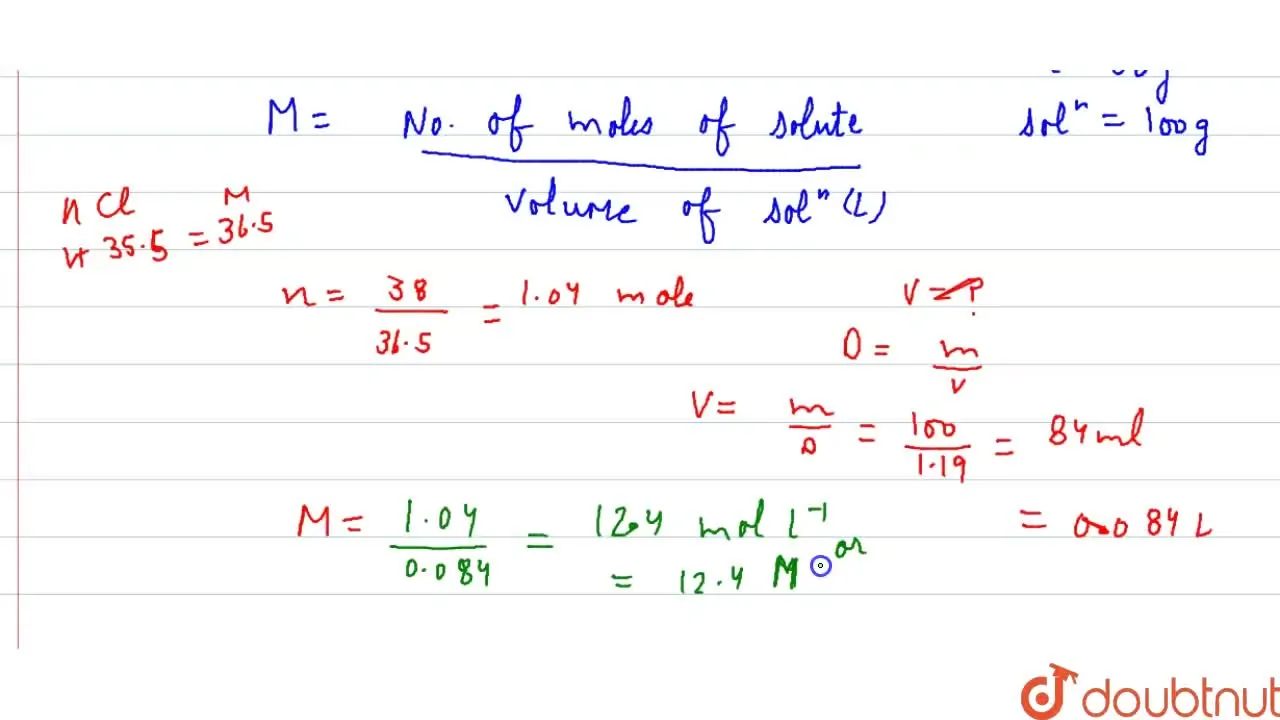 M = No. of moles of solute
Volume of solⁿ (L)
solⁿ = 100g
H Cl M
1+ 35.5 = 36.5
n = 38 / 36.5 = 1.04 mole
V = ?
D = m / v
V = m / D = 100 / 1.19 = 84 ml
= 0.084 L
M = 1.04 / 0.084 = 12.4 mol L⁻¹
= 12.4 M or
doubtnut